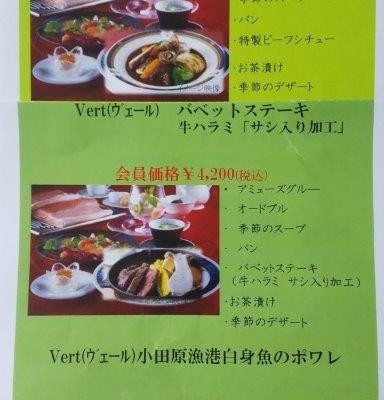 ・季節のスープ
・パン
・特製ビーフシチュー
・お茶漬け
・季節のデザート
イメージ映像
Vert(ヴェール) バベットステーキ
牛ハラミ「サシ入り加工」
会員価格￥4,200(税込)
・アミューズグルー
・オードブル
・季節のスープ
・パン
・バベットステーキ
(牛ハラミ サシ入り加工)
・お茶漬け
・季節のデザート
Vert(ヴェール)小田原漁港白身魚のポワレ